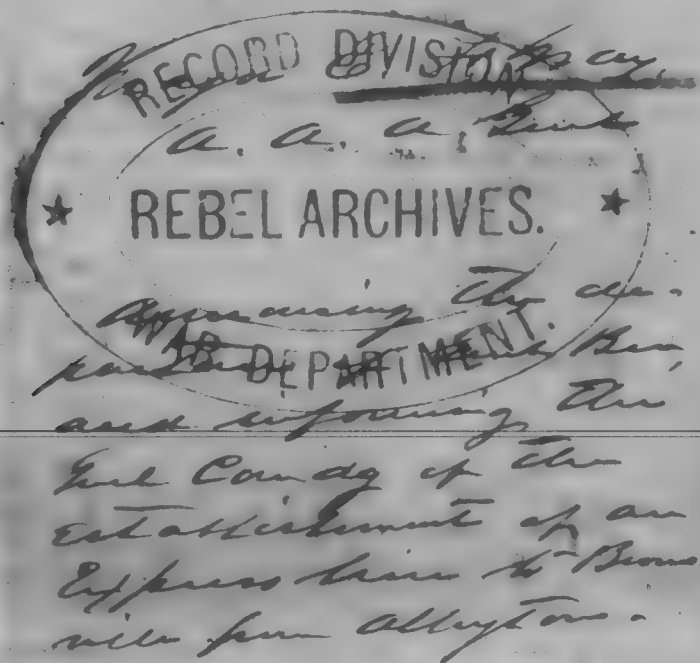 RECORD DIVISION
A. A. A. Genl
REBEL ARCHIVES.
announcing the de-
WAR DEPARTMENT.
Genl Bee
and informing the
Genl Comdg of the
establishment of an
Express line to Browns
ville from Alleyton.